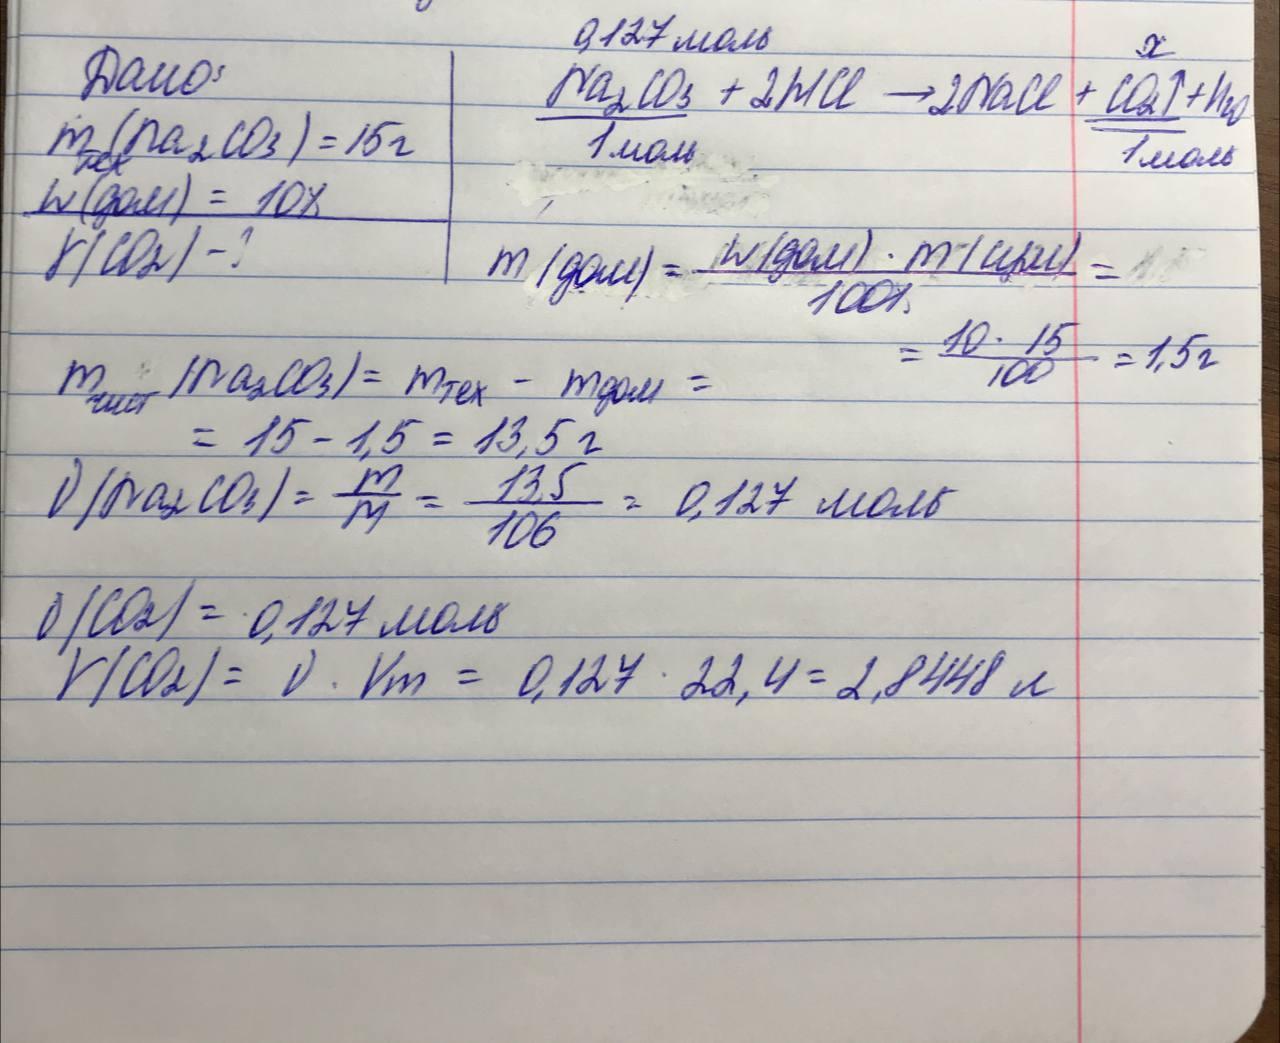 Дано:
m тех (Na2CO3) = 15г
w(дом) = 10%
V(CO2) - ?
0,127 моль x
Na2CO3 + 2HCl → 2NaCl + CO2↑ + H2O
1 моль 1 моль
m (дом) = w(дом) · m (    ) / 100% =
= 10 · 15 / 100 = 1,5г
m чист (Na2CO3) = mтех - mдом =
= 15 - 1,5 = 13,5 г
ν(Na2CO3) = m / M = 13,5 / 106 = 0,127 моль
ν(CO2) = 0,127 моль
V(CO2) = ν · Vm = 0,127 · 22,4 = 2,8448 л